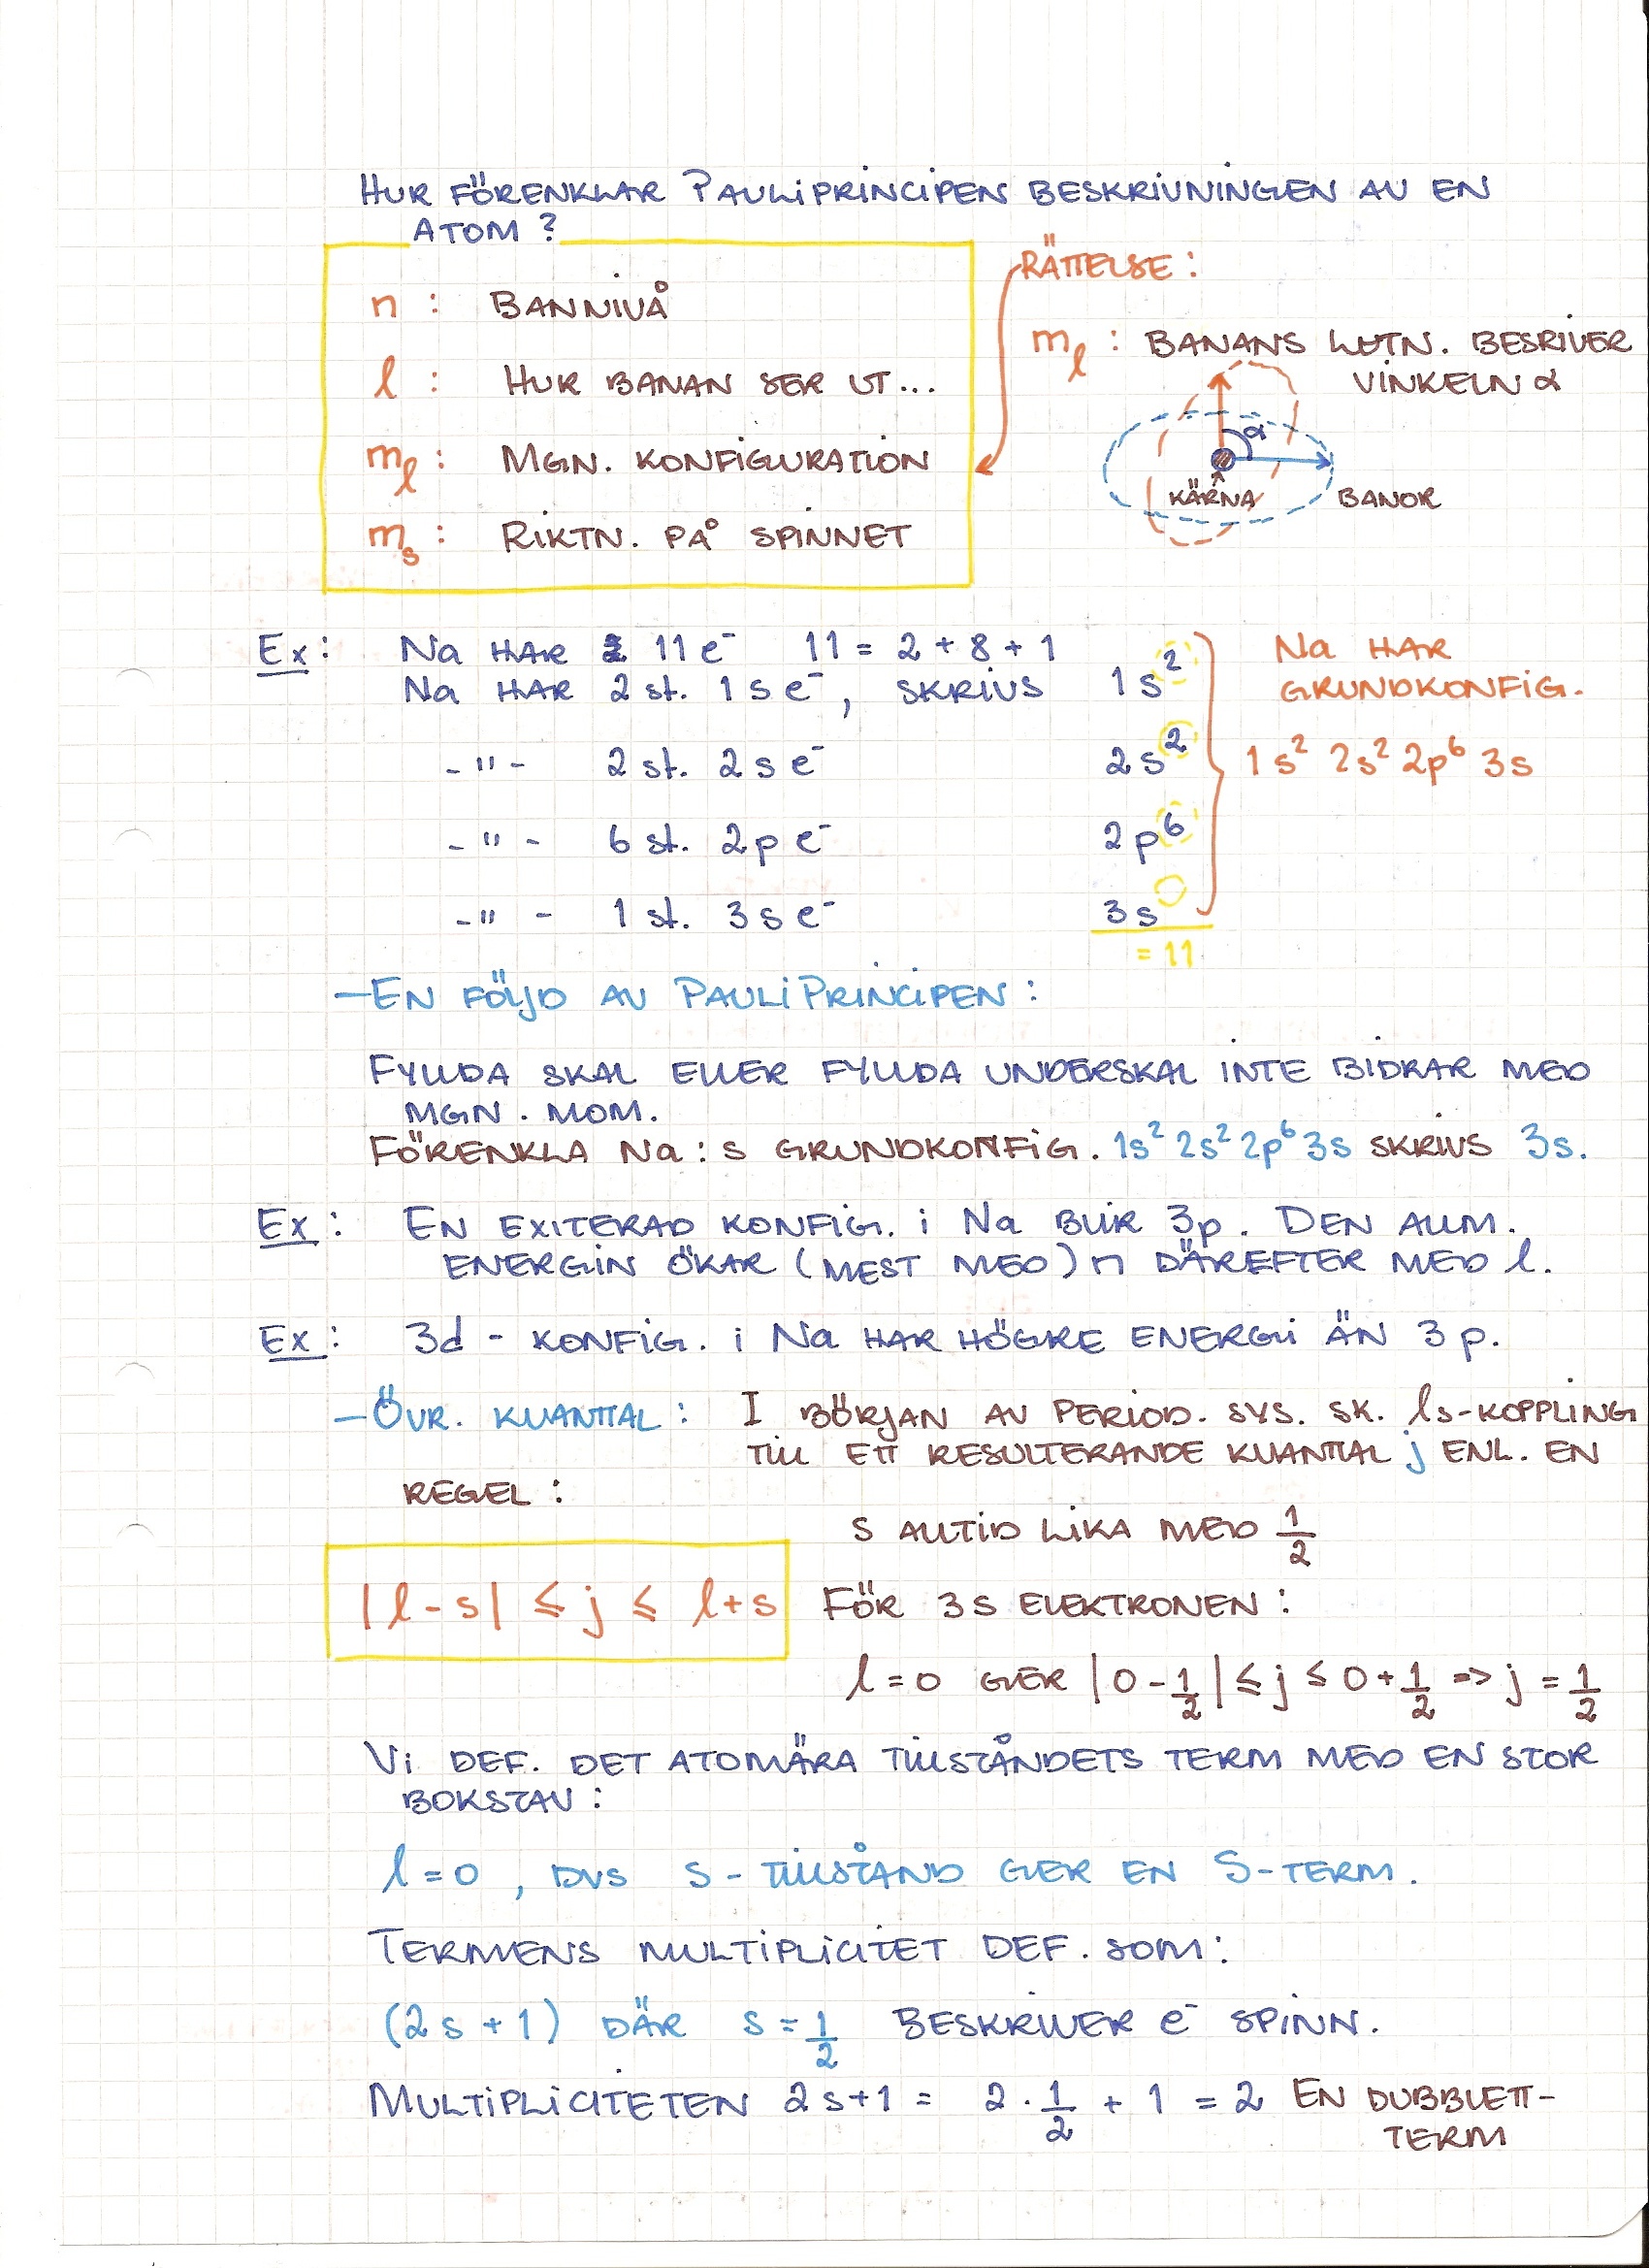 HUR FÖRENKLAR PAULIPRINCIPEN BESKRIVNINGEN AV EN
ATOM?
n : BANNIVÅ
l : HUR BANAN SER UT...
mₗ : MGN. KONFIGURATION
mₛ : RIKTN. PÅ SPINNET
RÄTTELSE :
mₗ : BANANS LUTN. BESRIVER
VINKELN α
α
KÄRNA
BANOR
Ex: Na HAR 11 e⁻ 11 = 2 + 8 + 1
Na HAR 2 st. 1s e⁻, SKRIVS 1s²
-"- 2 st. 2s e⁻ 2s²
-"- 6 st. 2p e⁻ 2p⁶
-"- 1 st. 3s e⁻ 3s
= 11
Na HAR
GRUNDKONFIG.
1s² 2s² 2p⁶ 3s
- EN FÖLJD AV PAULIPRINCIPEN :
FYLLDA SKAL ELLER FYLLDA UNDERSKAL INTE BIDRAR MED
MGN. MOM.
FÖRENKLA Na:s GRUNDKONFIG. 1s² 2s² 2p⁶ 3s SKRIVS 3s.
Ex: EN EXITERAD KONFIG. i Na BLIR 3p. DEN ALLM.
ENERGIN ÖKAR (MEST MED) n DÄREFTER MED l.
Ex: 3d - KONFIG. i Na HAR HÖGRE ENERGI ÄN 3p.
- ÖVR. KVANTTAL : I BÖRJAN AV PERIOD. SYS. SK. ls-KOPPLING
TILL ETT RESULTERANDE KVANTTAL j ENL. EN
REGEL :
S ALLTID LIKA MED 1/2
|l - s| ≤ j ≤ l + s
FÖR 3s ELEKTRONEN :
l = 0 GER |0 - 1/2| ≤ j ≤ 0 + 1/2 => j = 1/2
Vi DEF. DET ATOMÄRA TILLSTÅNDETS TERM MED EN STOR
BOKSTAV :
l = 0, DVS S - TILLSTÅND GER EN S-TERM.
TERMENS MULTIPLICITET DEF. SOM :
(2s + 1) DÄR s = 1/2 BESKRIVER e⁻ SPINN.
MULTIPLICITETEN 2s+1 = 2 · 1/2 + 1 = 2 EN DUBBLETT-
TERM